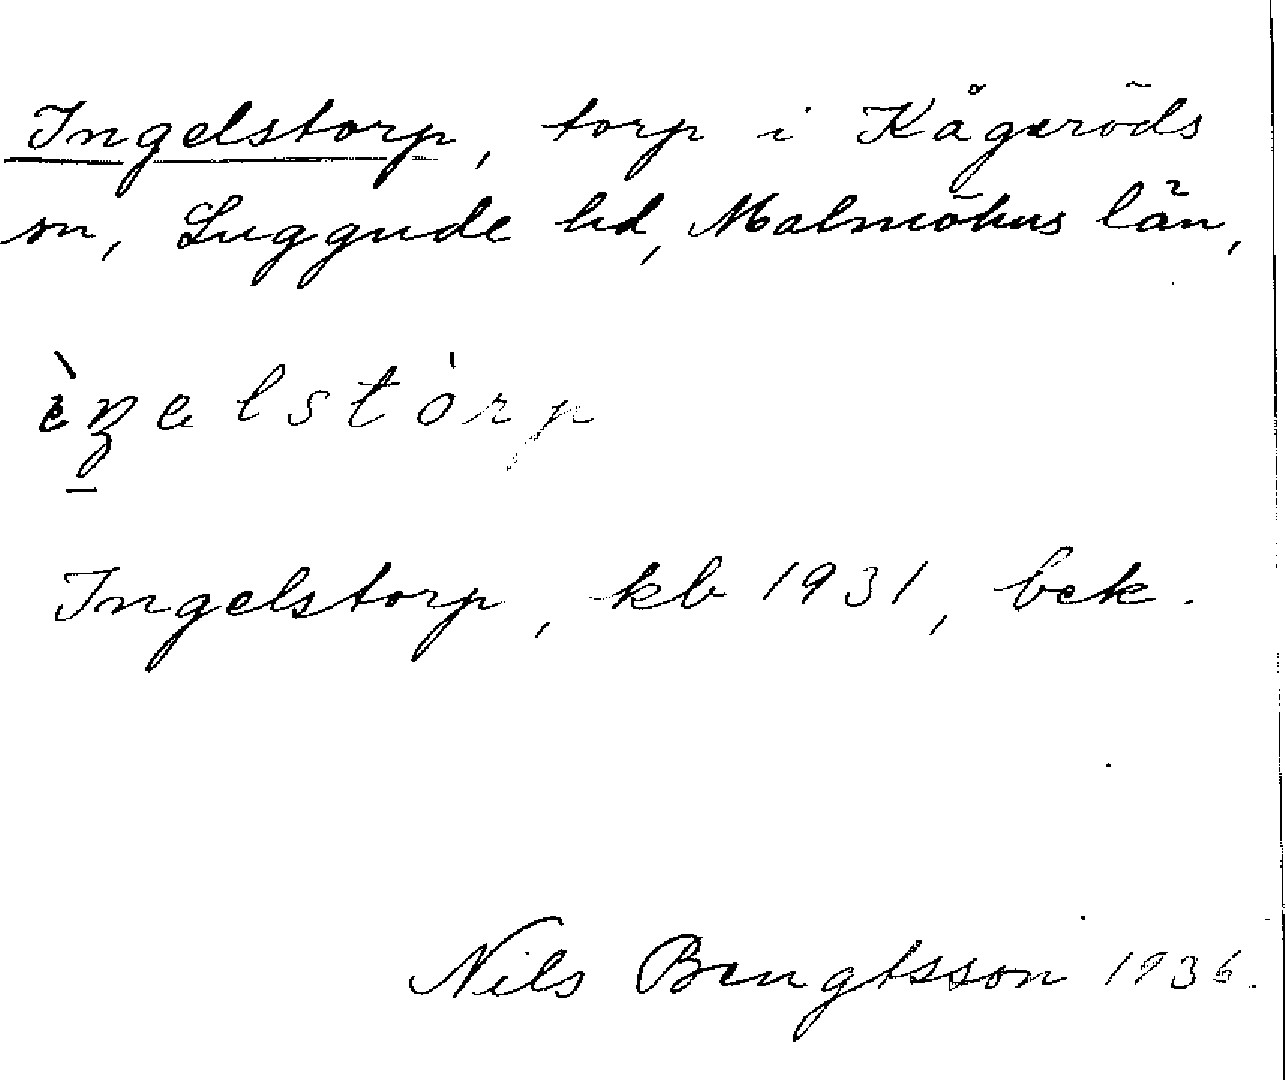 Ingelstorp, torp i Kågeröds
sn, Luggude hd, Malmöhus län,
èŋelstórp
Ingelstorp, kb 1931, bek.
Nils Bengtsson 1936.